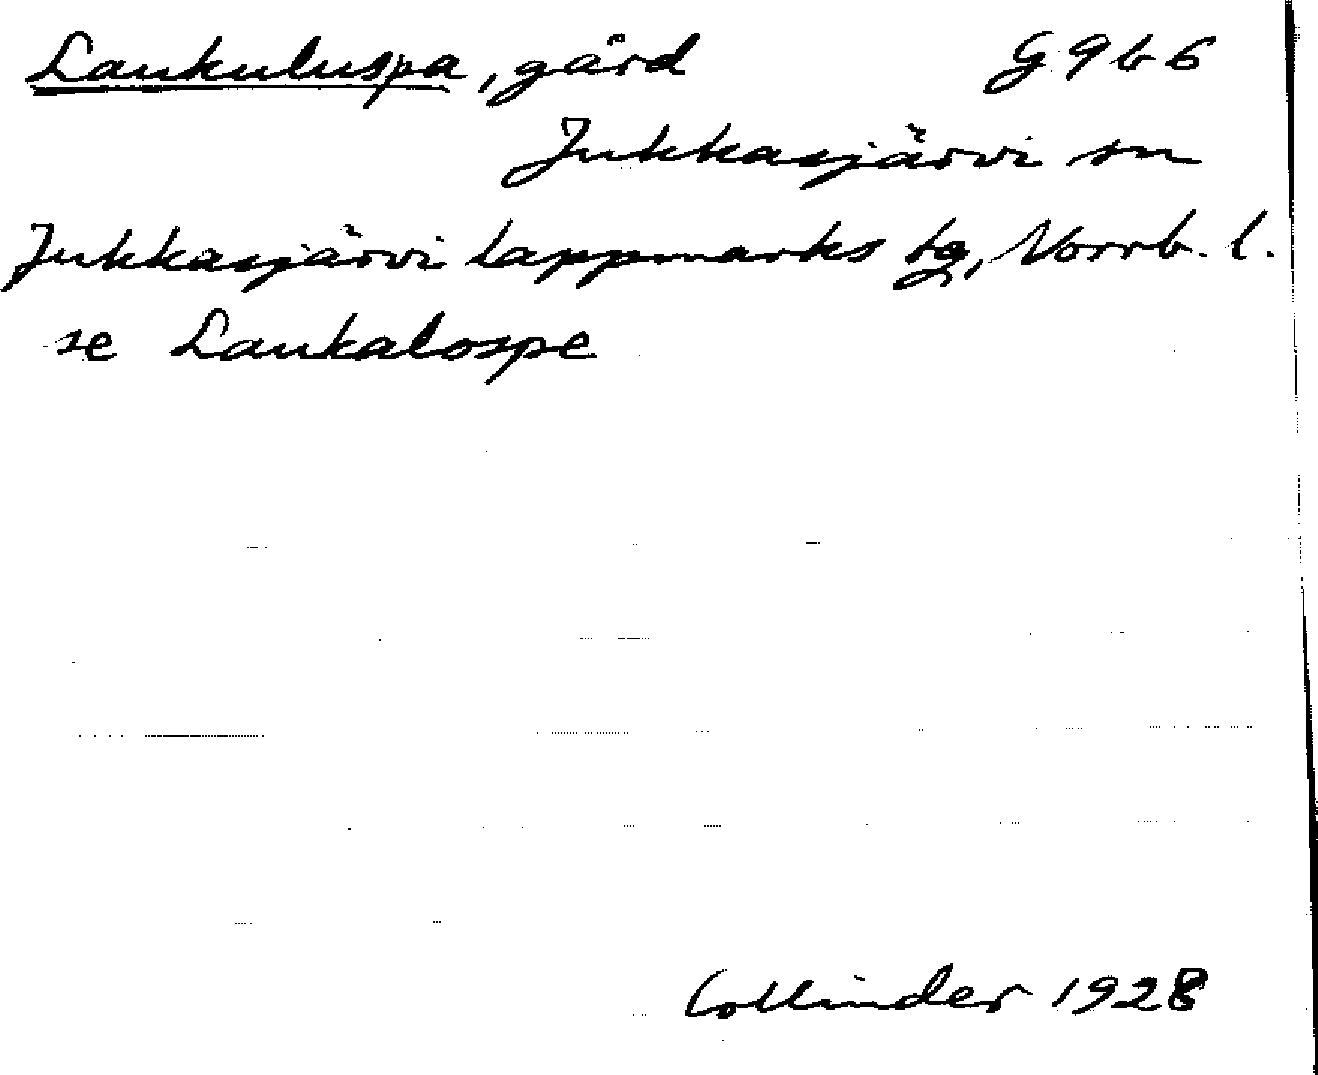 Laukuluspa, gård G 9 b 6
Jukkasjärvi sn
Jukkasjärvi lappmarks tg, Norrb. l.
se Laukalospe
Collinder 1928